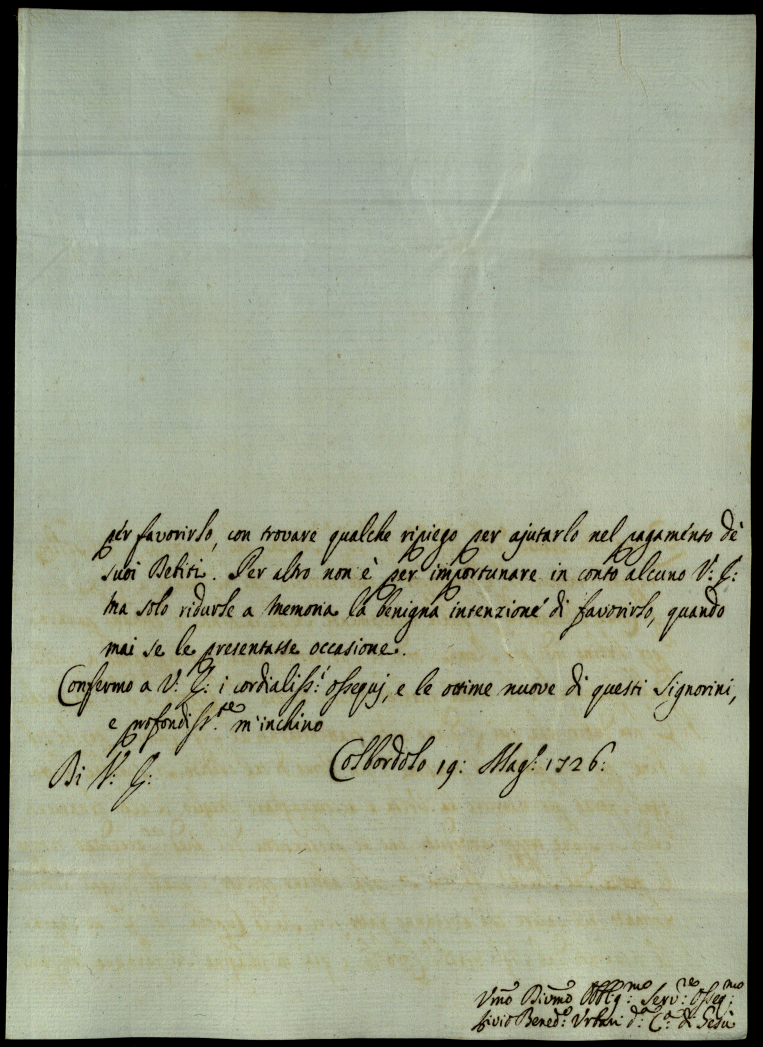 per favorirlo, con trovare qualche ripiego per ajutarlo nel pagamento de'
suoi Debiti. Per altro non è per importunare in conto alcuno V: S:
ma solo ridurle a memoria la benigna intenzione di favorirlo, quando
mai se le presentasse occasione.
Confermo a V: S: i cordialiss: ossequj, e le ottime nuove di questi Signorini,
e profondiss:te m'inchino
Di V: S:
Colbordolo 19: Mag: 1726:
Vmo Divmo Obblig:mo Serv:re Osseq:mo
Livio Bened: Urbani d: C:a di Gesù